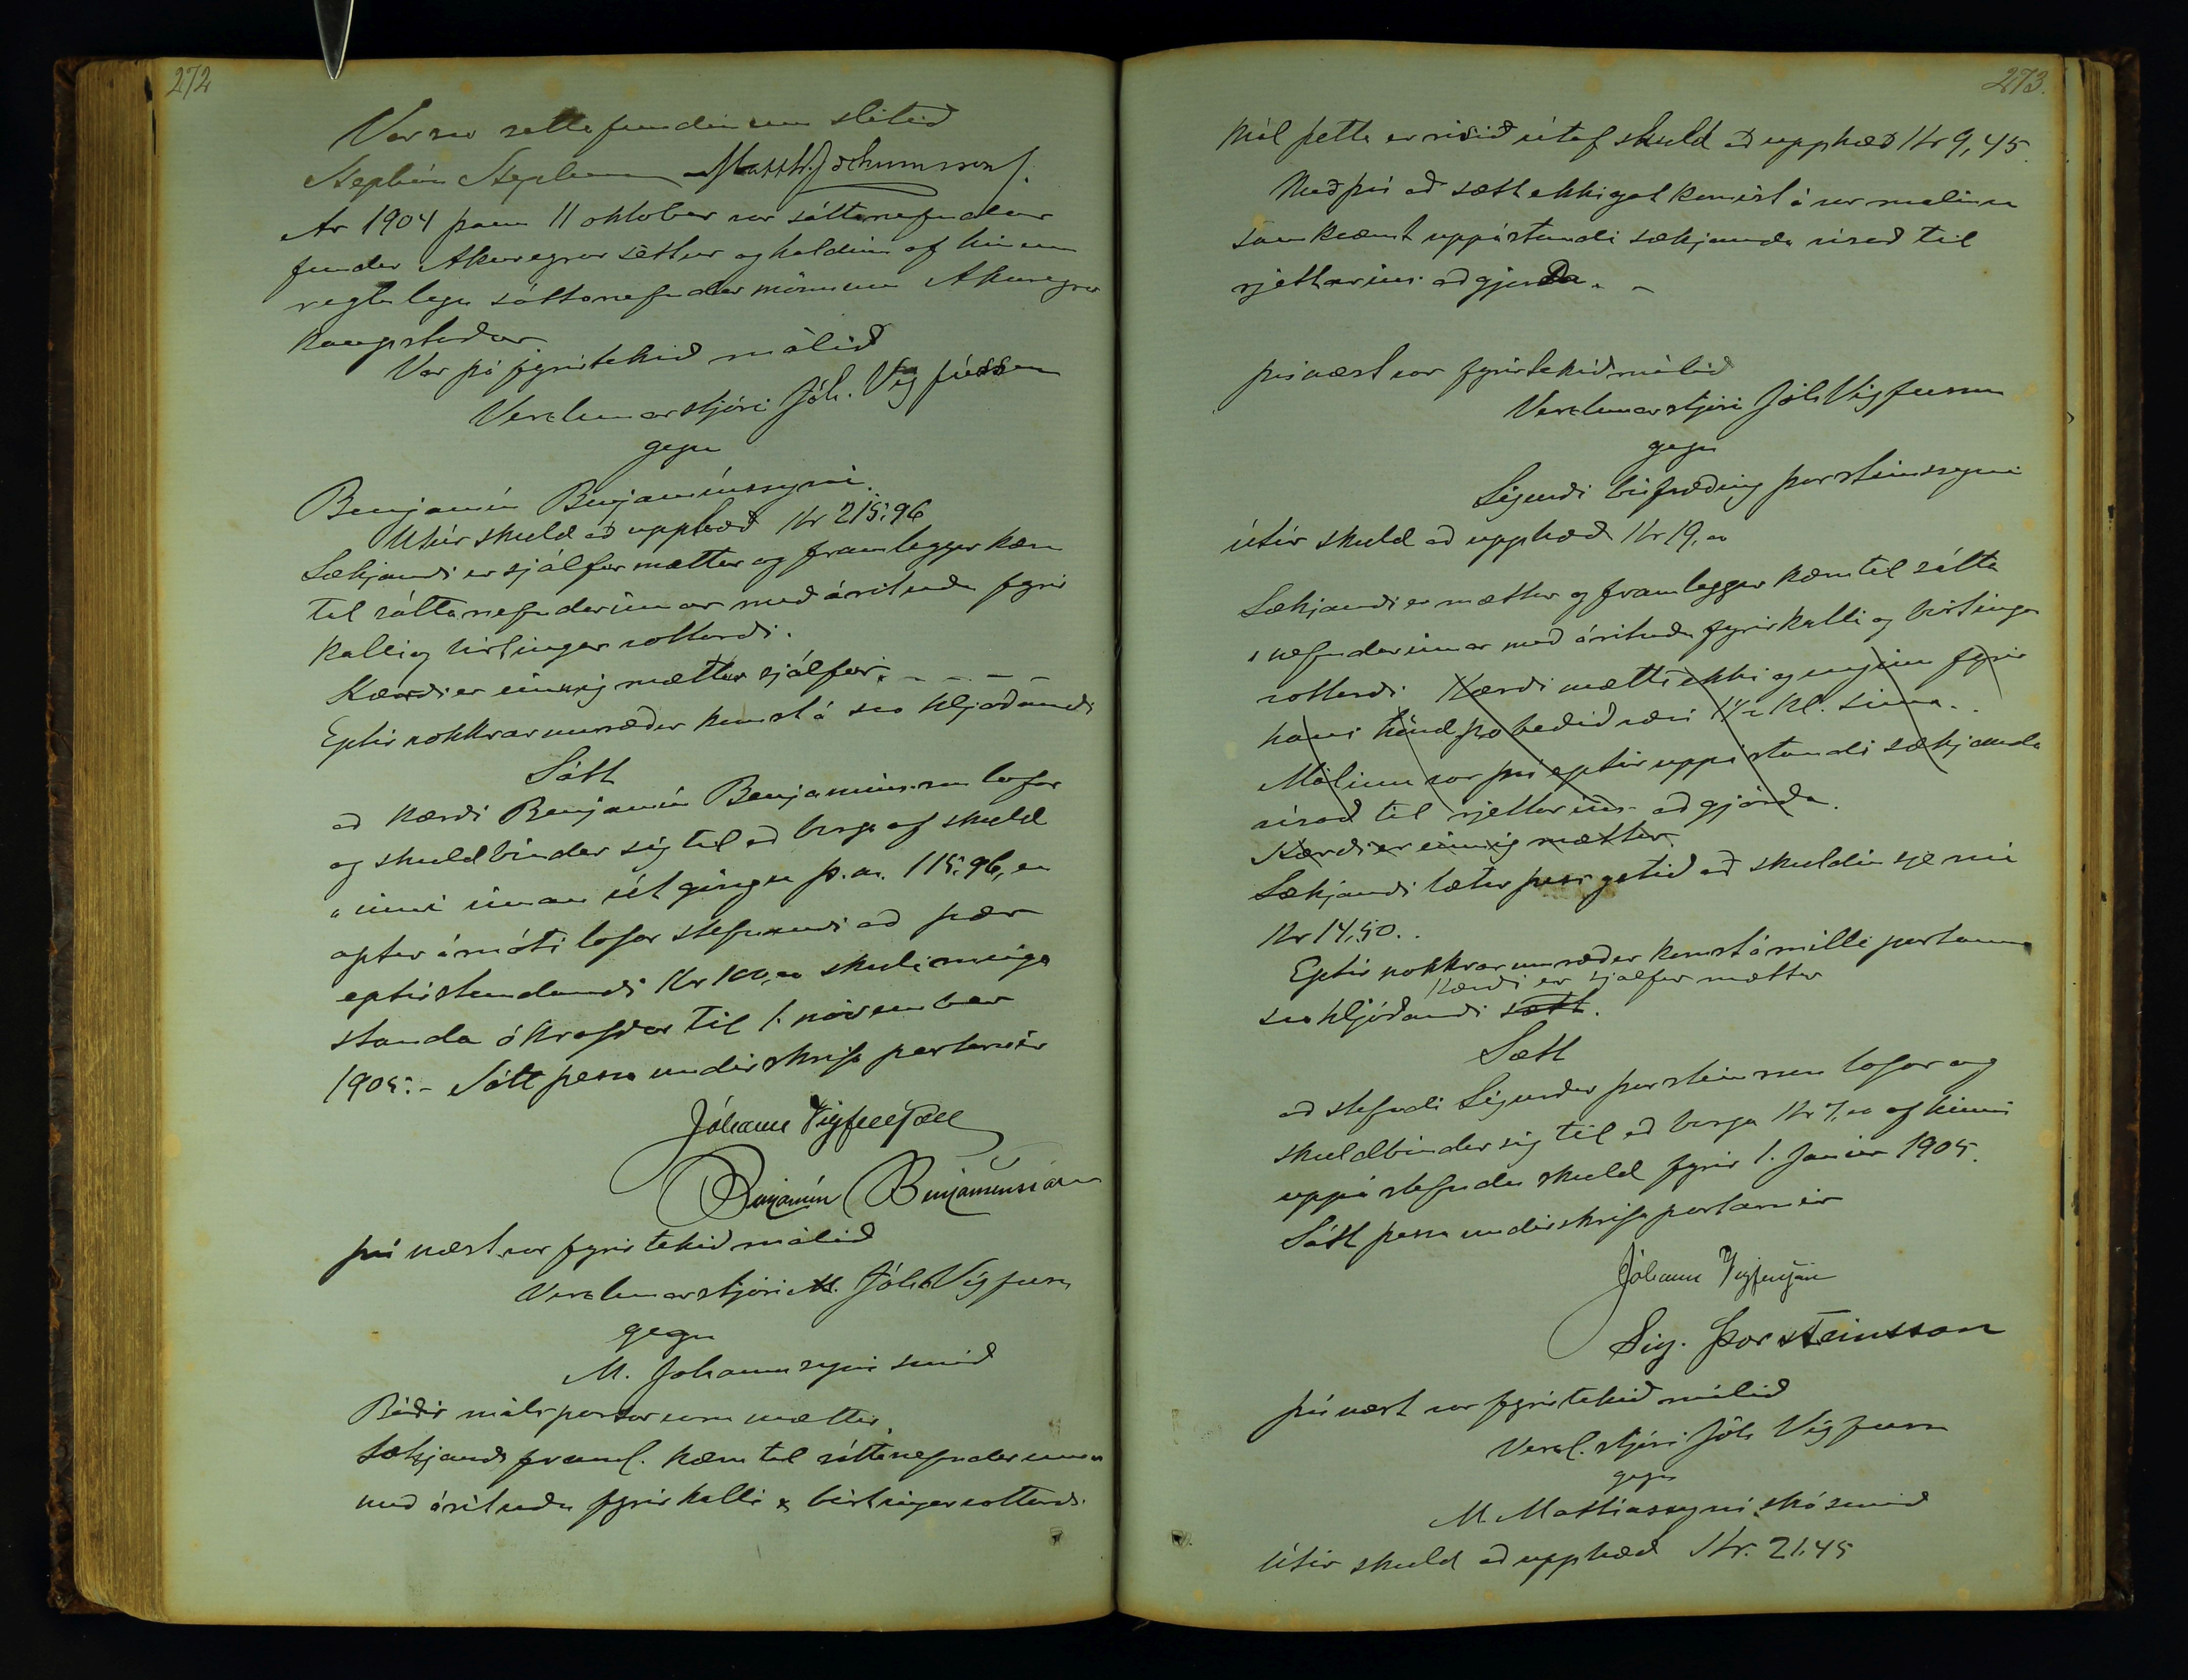 272
Var svo sáttafundinum slitið
Stephán Stephensen Matth. Jochumsson.
Ár 1904 þann 11 oktober var sáttanefndar
fundur Akureyrar settur og haldinn af hinum
reglulegu sáttanefndar mönnum Akureyrar
kaupstaðar
Var þá fyrirtekið málið
Verzlunarstjóri Jóh. Vigfússon
gegn
Benjamín Benjamínssyni.
Útúr skuld að upphæð Kr 215,96
Sækjandi er sjálfur mættur og framleggur kæru
til sáttanefndarinnar með árituðu fyrir
kalli og birtingar vottorði.
Kærði er einnig mættur sjálfur. - - - -
Eptir nokkrar umræður komst á svo hljóðandi
Sátt
að kærði Benjamín Benjamínsson lofar
og skuldbindur sig til að borga af skuld
"inni innan útgöngu þ.m. 115,96, en
aptur á móti lofar stefnandi að þær
eptirstandandi Kr 100,00 skuli mega
standa ókrafðar til 1. november
1905. - Sátt þessa undirskrifa partarnir
Jóhann Vigfússon
Benjamín Benjamínsson
því næst var fyrirtekið málið
Verzlunarstjóri Jóh Vigfúss
gegn
M. Jóhannssyni smið
Báðir málspartar voru mættir.
Sækjandi framl. kæru til sáttanefndarinnar
með árituðu fyrirkalli & birtingarvottorði
273.
Mál þetta er risið útaf skuld að upphæð Kr 9,45.
Með því að sætt ekki gat komist á var málinu
samkvæmt uppástandi sækjanda vísað til
rjettarins aðgjörða. -
því næst var fyrirtekið málið
Verzlunarstjóri Jóh Vigfússon
gegn
Sigurði búfræðing Þorsteinssyni
útúr skuld að upphæð Kr 19,00
Sækjandi er mættur og framleggur kæru til sátta
"nefndarinnar með árituðu fyrirkalli og birtingar
vottorði. Kærði mætti ekki og enginn fyrir
hans hönd þó beðið væri 1/2 kl. tíma..
Málinu var því eptir uppástandi sækjanda
vísað til rjettarins aðgjörða.
Kærði er einnig mættur.
Sækjandi lætur þess getið að skuldin sje nú
Kr 14,50..
Eptir nokkrar umræður komst á milli partanna
Kærði er sjálfur mættur
svo hljóðandi sætt.
Sætt
að stefndi Sigurður Þorsteinsson lofar og
skuldbindur sig til að borga Kr 7,00 af hinni
uppástefndu skuld fyrir 1. Janúar 1905.
Sátt þessa undirskrifa partarnir
Jóhann Vigfússon
Sig. Þorsteinsson
því næst var fyrirtekið málið
Verzl. stjóri Jóh Vigfúss
gegn
M. Mattiassyni skósmið
Útúr skuld að upphæð Kr. 21,45